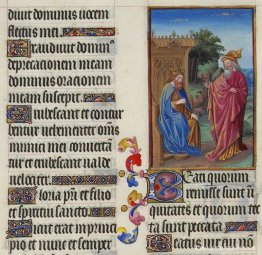 divit dominus vocem
fletus mei.
Exaudivit dominus
deprecacionem meam
dominus oracionem
meam suscepit.
Erubescant et contur
bentur vehementer omnes
inimici mei convertan
tur et erubescant valde
velociter.
Gloria patri et filio
et spiritui sancto.
Sicut erat in princi
pio et nunc et semper
Beati quorum
remisse sunt in
iquitates et quorum tec
ta sunt peccata.
Beatus vir cui non